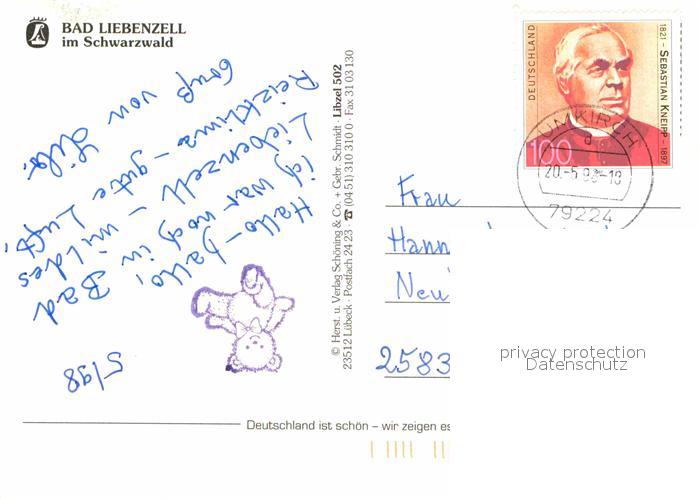 BAD LIEBENZELL
im Schwarzwald
5/98
Hallo-Dallo,
ich war noch in Bad
Liebenzell - mildes
Reizklima - gute Luft,
Gruß von
© Herst. u. Verlag Schöning & Co. + Gebr. Schmidt Libzel 502
23512 Lübeck · Postfach 24 23 · ☎ (04 51) 310 310 · Fax 31 03 130
DEUTSCHLAND
1821 – SEBASTIAN KNEIPP – 1897
100
UMKIRCH
a
20.-5.98-18
79224
Frau
Hann
Neu
2583
privacy protection
Datenschutz
Deutschland ist schön – wir zeigen es